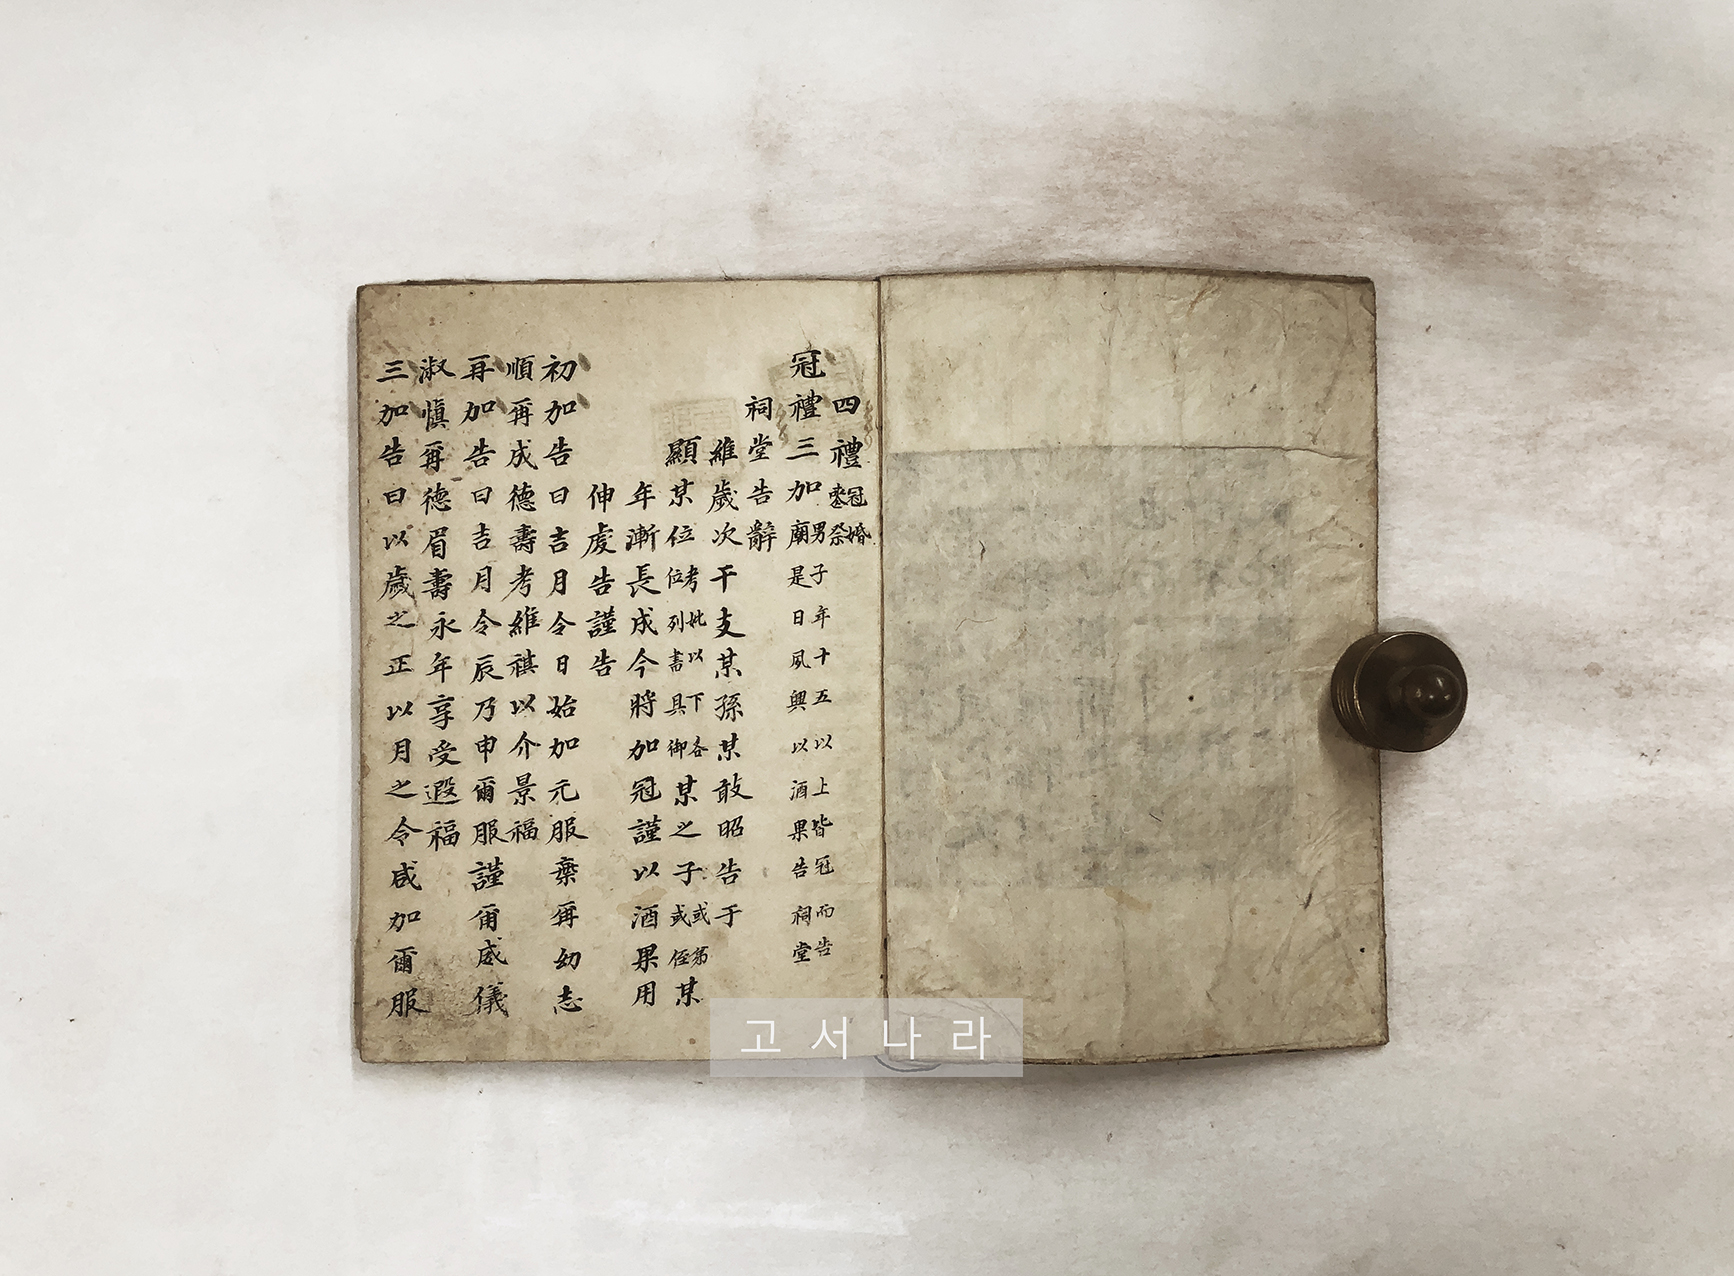 四禮 冠婚喪祭
冠禮三加 男子年十五以上皆冠而告廟是日夙興以酒果告祠堂
祠堂告辭
維歲次干支某孫某敢昭告于
顯某位 考妣以下各位列書具御 某之子 或弟或侄 某
年漸長成今將加冠謹以酒果用
伸虔告謹告
初加告曰吉月令日始加元服棄爾幼志
順爾成德壽考維祺以介景福
再加告曰吉月令辰乃申爾服謹爾威儀
淑愼爾德眉壽永年享受遐福
三加告曰以歲之正以月之令咸加爾服
고서나라